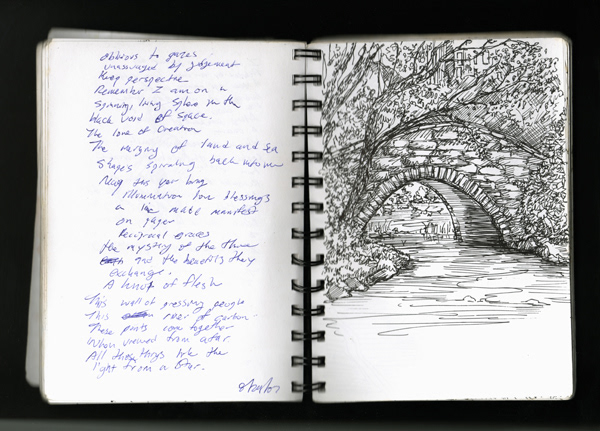 oblivious to gazes
unassuaged by judgement
Keep perspective
Remember I am on a
spinning, living sphere in the
black void of space.
The love of Creation
The merging of land and sea
Stages spiraling back into
May this year bring
illumination love blessings
on
Reciprocal graces
the mystery of the three
and the benefits they
exchange.
A knot of flesh
This wall of pressing people
This reef of carbon
These points come together
When viewed from afar
All these things like the
light from a star.